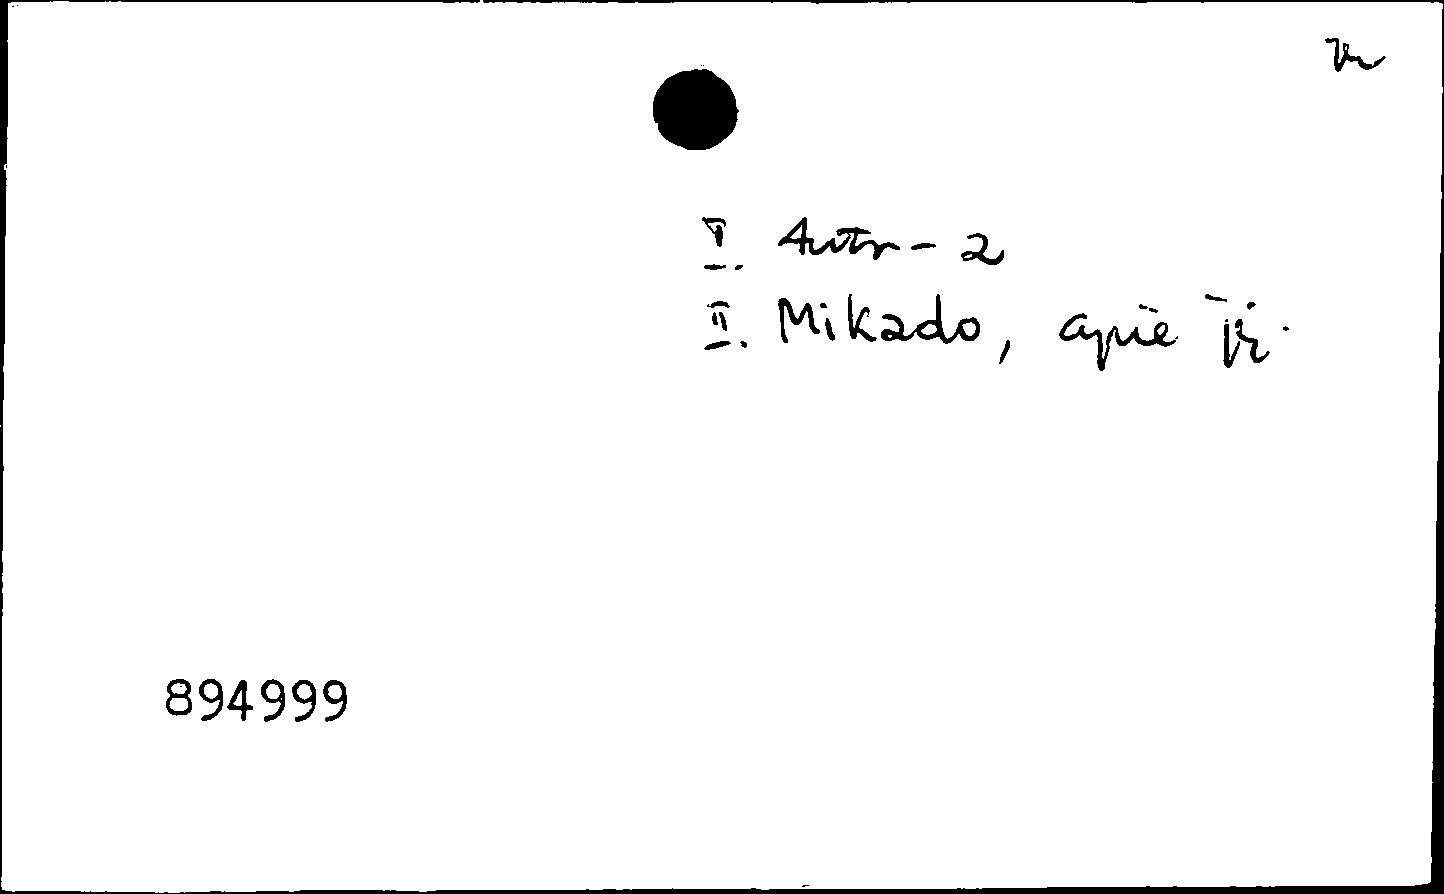 I. Autr-2
II. Mikado, apie jį.
894999